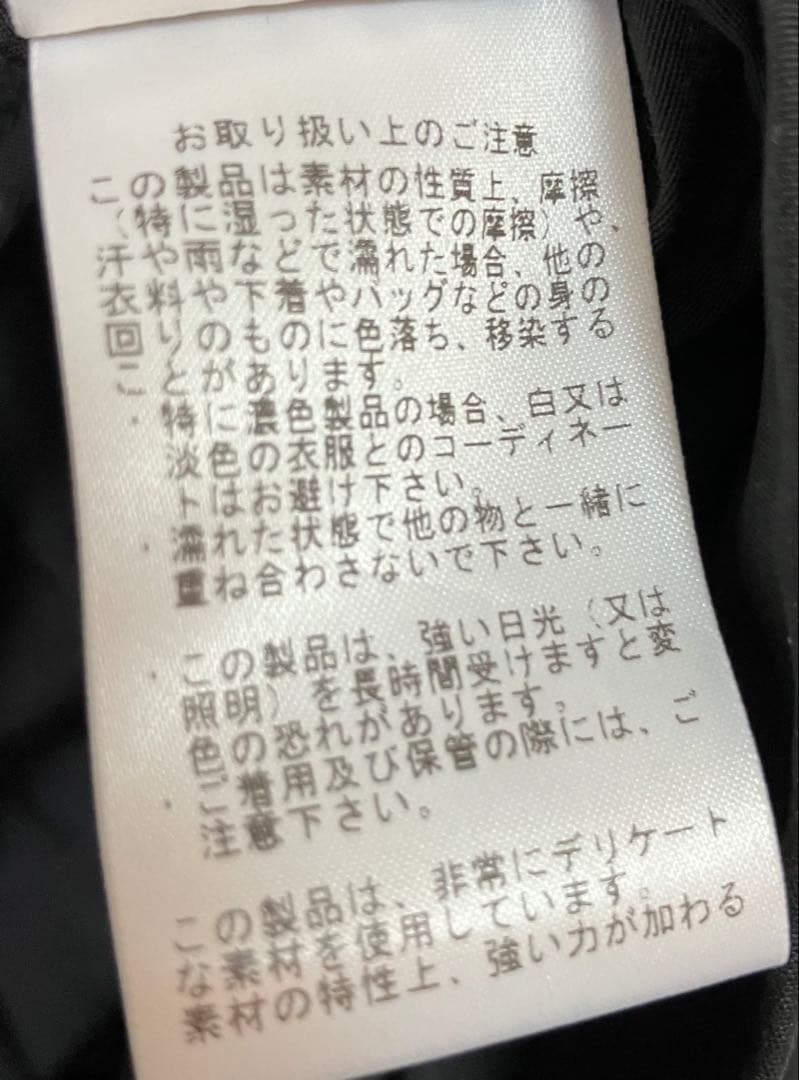 お取り扱い上のご注意
この製品は素材の性質上、摩擦
（特に湿った状態での摩擦）や、
汗や雨などで濡れた場合、他の
衣料や下着やバッグなどの身の
回りのものに色落ち、移染する
ことがあります。
・特に濃色製品の場合、白又は
淡色の衣服とのコーディネー
トはお避け下さい。
・濡れた状態で他の物と一緒に
重ね合わさないで下さい。
・この製品は、強い日光（又は
照明）を長時間受けますと変
色の恐れがあります。
・ご着用及び保管の際には、ご
注意下さい。
この製品は、非常にデリケート
な素材を使用しています。
素材の特性上、強い力が加わる